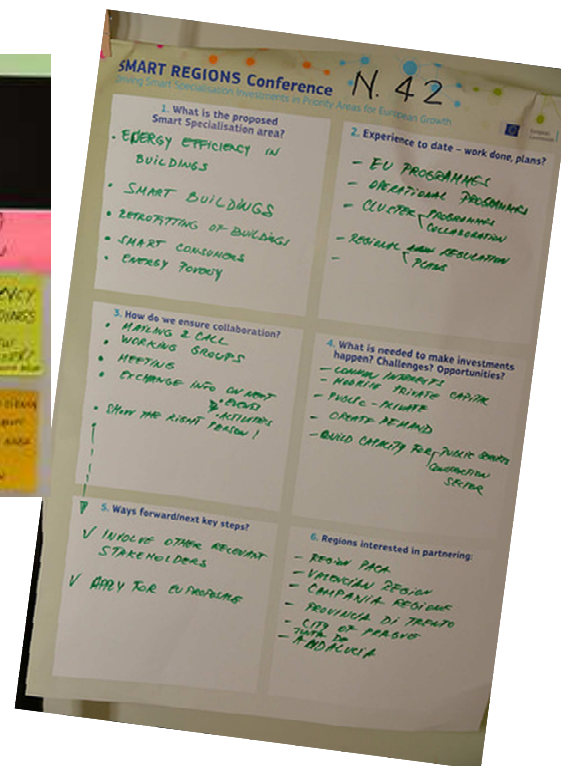 SMART REGIONS Conference
Driving Smart Specialisation Investments in Priority Areas for European Growth
N. 42
European Commission
1. What is the proposed
Smart Specialisation area?
• ENERGY EFFICIENCY IN
BUILDINGS
• SMART BUILDINGS
• RETROFITTING OF BUILDINGS
• SMART CONSUMERS
• ENERGY POVERTY
2. Experience to date – work done, plans?
– EU PROGRAMMES
– OPERATIONAL PROGRAMMES
– CLUSTER PROGRAMMES
COLLABORATION
– REGIONAL REGULATION
PLANS
–
3. How do we ensure collaboration?
• MAILING & CALL
• WORKING GROUPS
• MEETING
• EXCHANGE INFO ON NEXT
• EVENTS
• ACTIVITIES
• SHOW THE RIGHT
PERSON!
4. What is needed to make investments
happen? Challenges? Opportunities?
– COMMON INTERESTS
– MOBILISE PRIVATE CAPITAL
– PUBLIC – PRIVATE
– CREATE DEMAND
– BUILD CAPACITY FOR PUBLIC
CONSTRUCTION
SECTOR
5. Ways forward/next key steps?
✓ INVOLVE OTHER RELEVANT
STAKEHOLDERS
✓ APPLY FOR EU PROPOSALS
6. Regions interested in partnering:
– REGION PACA
– VALENCIAN REGION
– CAMPANIA REGIONE
– PROVINCIA DI TRENTO
– CITY OF PRAGUE
– JUNTA DE
ANDALUCIA